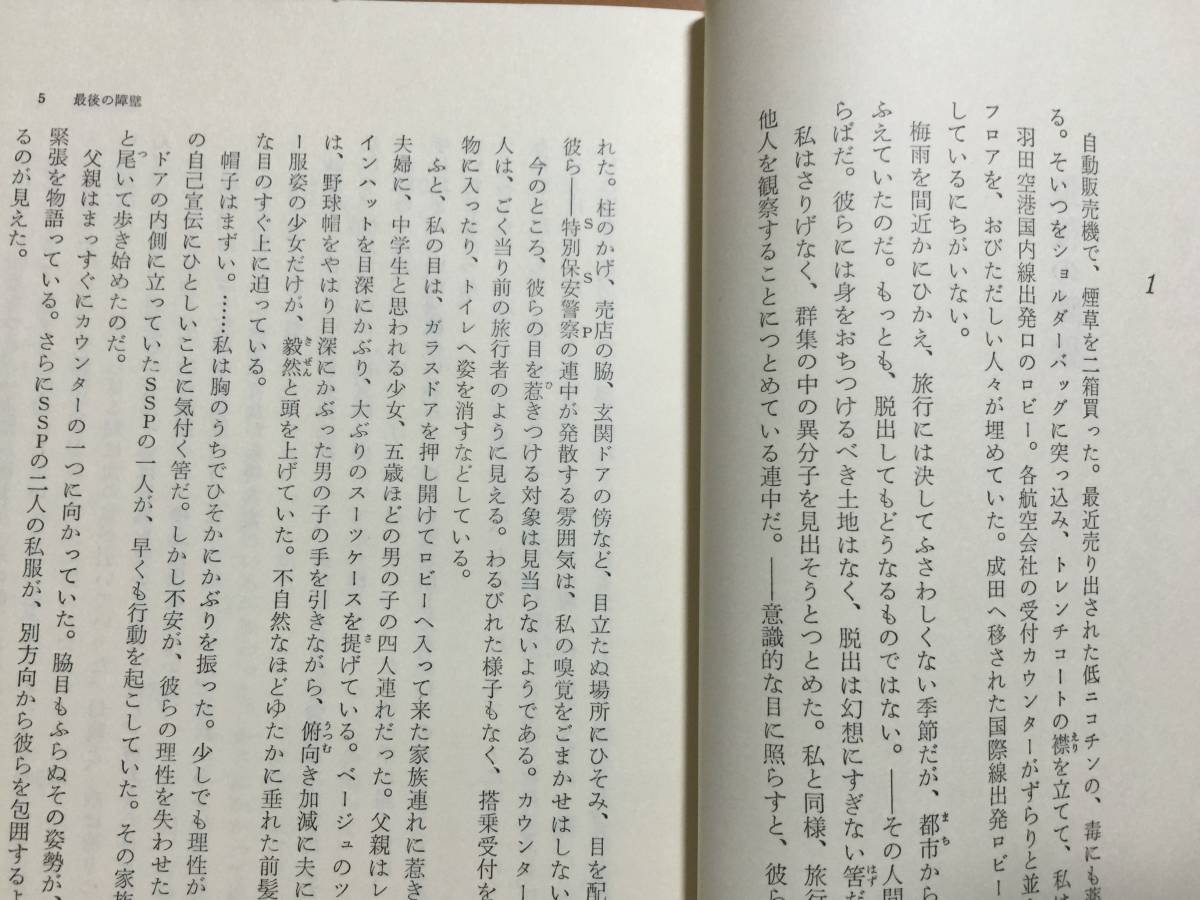 1
自動販売機で、煙草を二箱買った。最近売り出された低ニコチンの、毒にも薬
る。そいつをショルダーバッグに突っ込み、トレンチコートの襟を立てて、私は
えり
羽田空港国内線出発口のロビー。各航空会社の受付カウンターがずらりと並
フロアを、おびただしい人々が埋めていた。成田へ移された国際線出発ロビー
しているにちがいない。
梅雨を間近かにひかえ、旅行には決してふさわしくない季節だが、都市から
まち
ふえていたのだ。もっとも、脱出してもどうなるものではない。――その人間
らばだ。彼らには身をおちつけるべき土地はなく、脱出は幻想にすぎない筈だ
はず
私はさりげなく、群集の中の異分子を見出そうとつとめた。私と同様、旅行
他人を観察することにつとめている連中だ。――意識的な目に照らすと、彼ら
5 最後の障壁
れた。柱のかげ、売店の脇、玄関ドアの傍など、目立たぬ場所にひそみ、目を配
彼ら――特別保安警察の連中が発散する雰囲気は、私の嗅覚をごまかせはしない
SSP
今のところ、彼らの目を惹きつける対象は見当らないようである。カウンター
ひ
人は、ごく当り前の旅行者のように見える。わるびれた様子もなく、搭乗受付を
物に入ったり、トイレへ姿を消すなどしている。
ふと、私の目は、ガラスドアを押し開けてロビーへ入って来た家族連れに惹き
夫婦に、中学生と思われる少女、五歳ほどの男の子の四人連れだった。父親はレ
インハットを目深にかぶり、大ぶりのスーツケースを提げている。ベージュのツ
さ
は、野球帽をやはり目深にかぶった男の子の手を引きながら、俯向き加減に夫に
うつむ
ー服姿の少女だけが、毅然と頭を上げていた。不自然なほどゆたかに垂れた前髪
きぜん
な目のすぐ上に迫っている。
帽子はまずい。……私は胸のうちでひそかにかぶりを振った。少しでも理性が
の自己宣伝にひとしいことに気付く筈だ。しかし不安が、彼らの理性を失わせた
ドアの内側に立っていたSSPの一人が、早くも行動を起こしていた。その家族
と尾いて歩き始めたのだ。
つ
父親はまっすぐにカウンターの一つに向かっていた。脇目もふらぬその姿勢が、
緊張を物語っている。さらにSSPの二人の私服が、別方向から彼らを包囲するよ
るのが見えた。